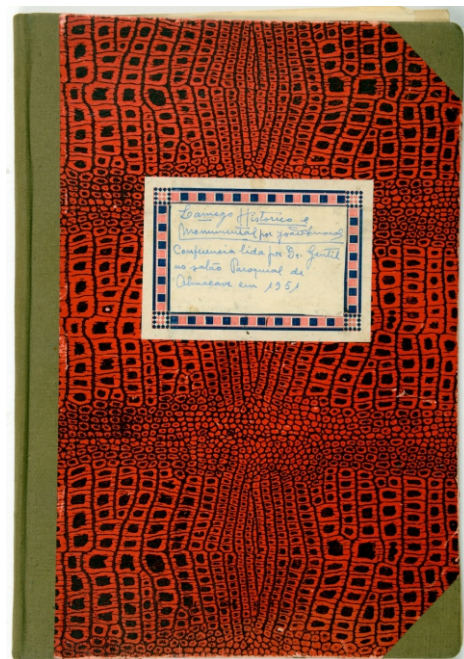 Lamego Historico e
Monumental por João Amaral
Conferencia lida por Dr. Gentil
no salão Paroquial de
Almacave em 1951